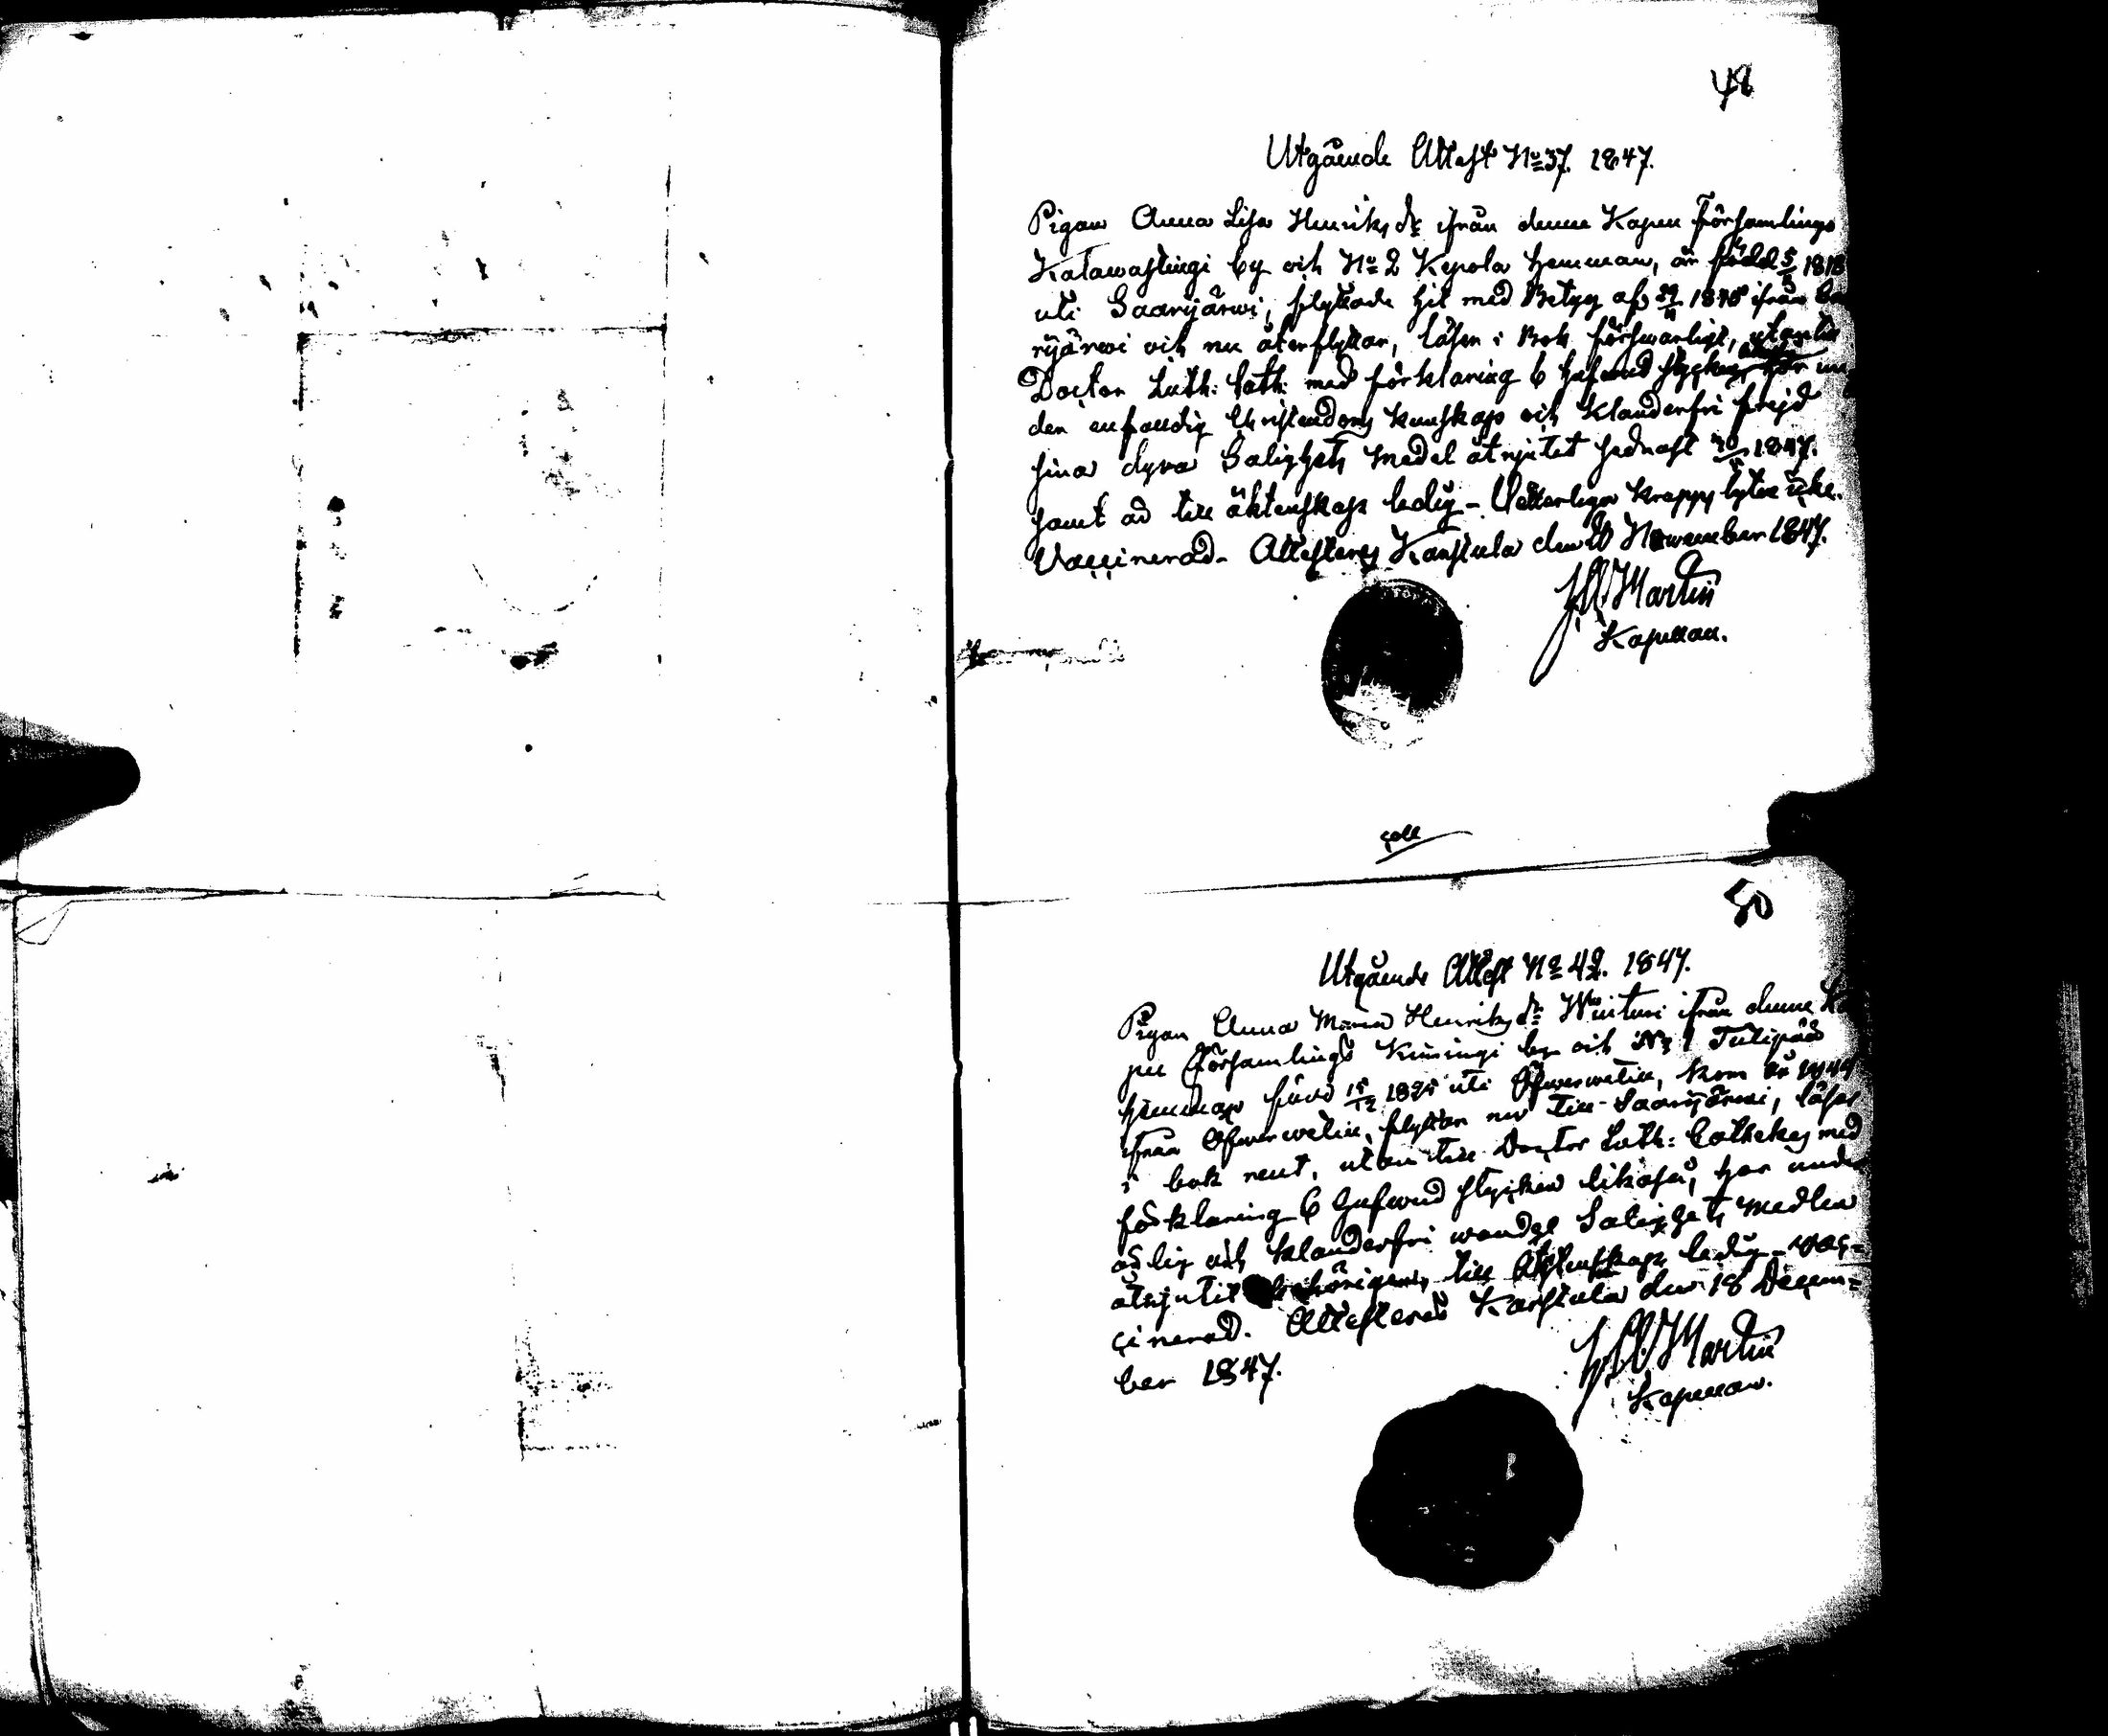 48
Utgående Attest No 37. 1847.
Pigan Anna Lisa Henriksdr ifrån denne Kapell Församlings
Kalawastingi by och No 2 Kepola hemman, är född 5/3 1818
uti Saarijärwi, flyttade hit med Betyg af ifrån Saa
rijärwi och nu återflyttar, läser i Bok försvarligt, utantill
Doctor Luth: Cath: med förklaring 6 hufwud stycken, har un
der enfaldig Christendoms kunskap och klanderfri frejd
sina dyra Salighets medel åtnjutit sednast 1847.
samt är till äktenskap ledig - Wetterligen kropps lyten icke.
Vaccinerad - Attesteras Karstula den 20 November 1847.
Martin
Kapellan.
coll
50
Utgående Attest No 42. 1847.
Pigan Anna Maria Henriksdr Wintturi ifrån denne Ka
pell Församlings Kiminingi by och No 1 Tulipää
hemman född 15/12 1825 uti Öfwerwetil, kom år 1844
ifrån Öfwerwetil, flyttar nu till Saarijärwi, läser
i bok rent, utan till Doctor Luth: Cathekes med
förklaring 6 hufwud stycken likaså, har under
ärlig och klanderfri wandel Salighets medlen
åtnjutit behörigen, till Äktenskap ledig - vac-
cinerad. Attesteras Karstula den 18 Decem-
ber 1847.
Martin
Kapellan.